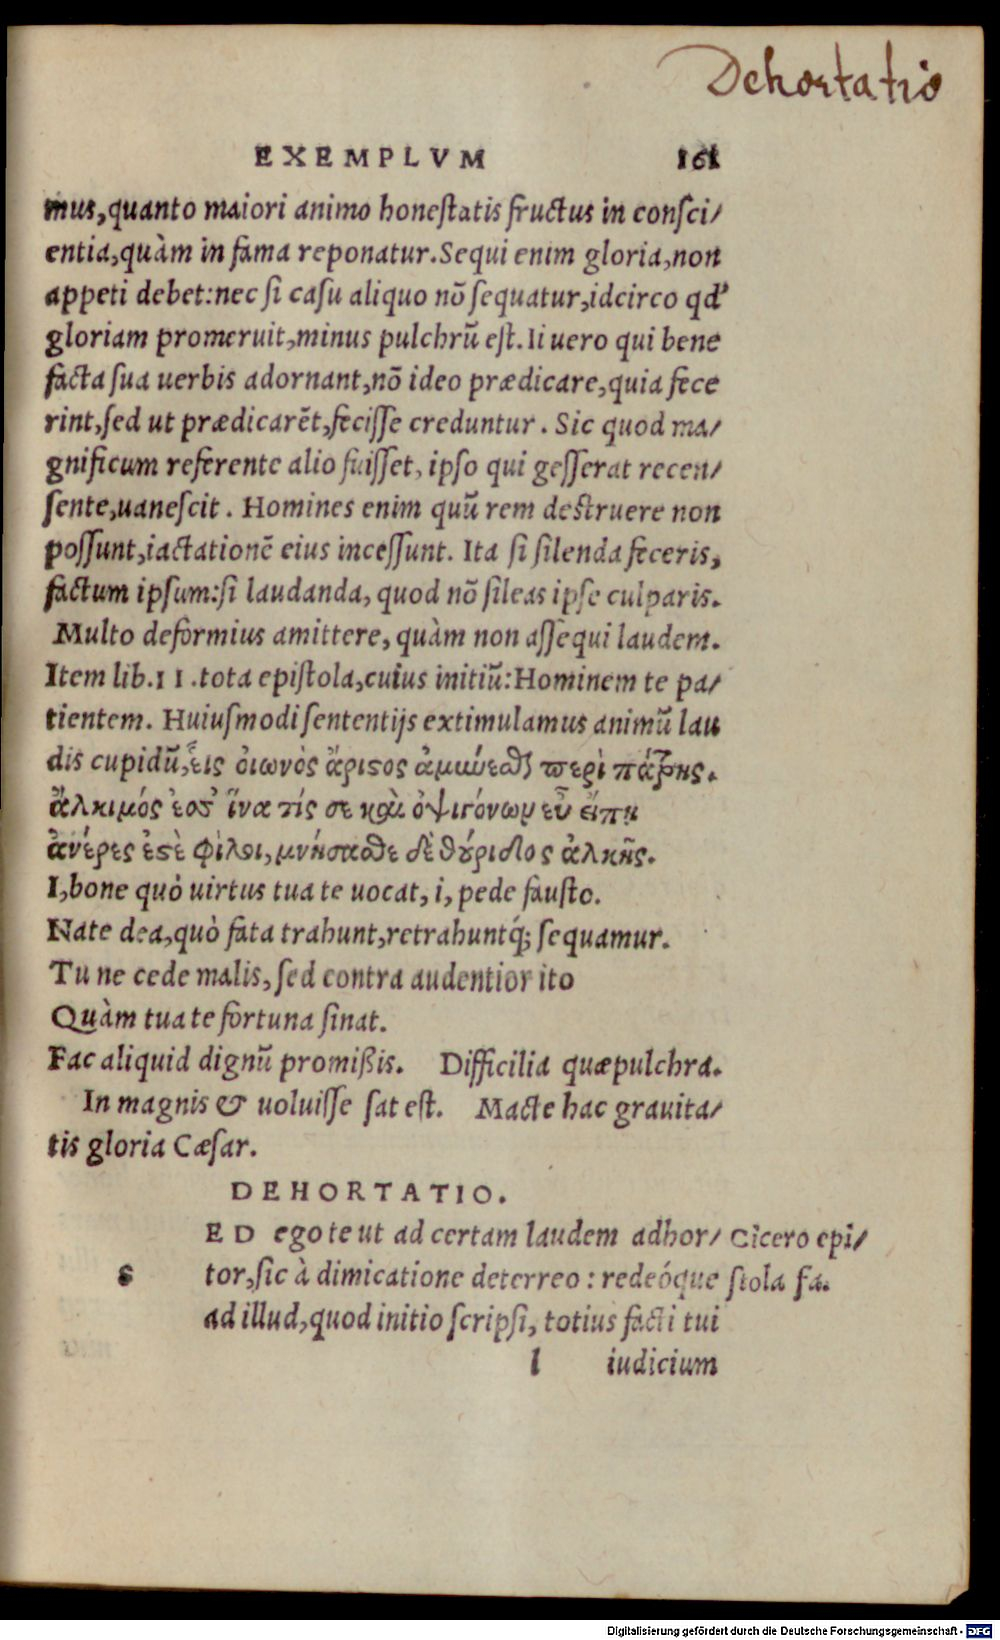 Dehortatio
EXEMPLVM 161
mus,quanto maiori animo honeſtatis fructus in conſci/
entia,quàm in fama reponatur.Sequi enim gloria,non
appeti debet:nec ſi caſu aliquo nō ſequatur,idcirco qd'
gloriam promeruit,minus pulchrū eſt.Ii uero qui bene
facta ſua uerbis adornant,nō ideo prædicare,quia fece
rint,ſed ut prædicarēt,feciſſe creduntur. Sic quod ma/
gnificum referente alio fuiſſet, ipſo qui geſſerat recen/
ſente,uaneſcit. Homines enim quū rem deſtruere non
poſſunt,iactationē eius inceſſunt. Ita ſi ſilenda feceris,
factum ipſum:ſi laudanda, quod nō ſileas ipſe culparis.
Multo deformius amittere, quàm non aſſequi laudem.
Item lib.II.tota epiſtola,cuius initiū:Hominem te pa/
tientem. Huiuſmodi ſententijs extimulamus animū lau
dis cupidū,εἷς ὀιωνὸς ἄριστος ἀμύνεσθαι περὶ πάτρης.
ἄλκιμός ἐσσ' ἵνα τίς σε καὶ ὀψιγόνων εὖ ἔιπῃ
ἀνέρες ἐστὲ φίλοι, μνήσασθε δὲ θούριδος ἀλκῆς.
I,bone quò uirtus tua te uocat, i, pede fauſto.
Nate dea,quò fata trahunt,retrahuntq́; ſequamur.
Tu ne cede malis, ſed contra audentior ito
Quàm tua te fortuna ſinat.
Fac aliquid dignū promißis. Difficilia quæ pulchra.
In magnis & uoluiſſe ſat eſt. Macte hac grauita/
tis gloria Cæſar.
DEHORTATIO.
S ED ego te ut ad certam laudem adhor/ Cicero epi/
tor,ſic à dimicatione deterreo: redeóque ſtola fa.
ad illud,quod initio ſcripſi, totius facti tui
l iudicium
Digitalisierung gefördert durch die Deutsche Forschungsgemeinschaft - DFG